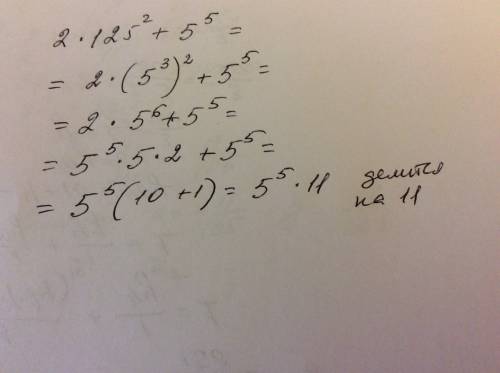 2 · 125² + 5⁵ =
= 2 · (5³)² + 5⁵ =
= 2 · 5⁶ + 5⁵ =
= 5⁵ · 5 · 2 + 5⁵ =
= 5⁵ (10 + 1) = 5⁵ · 11 делится
на 11